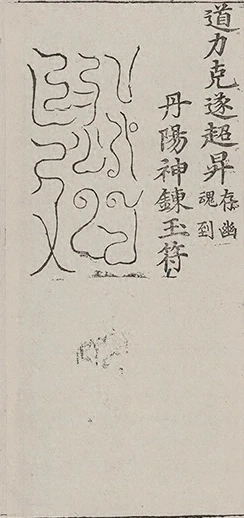 道力克遂超昇存幽魂到
丹陽神鍊玉符